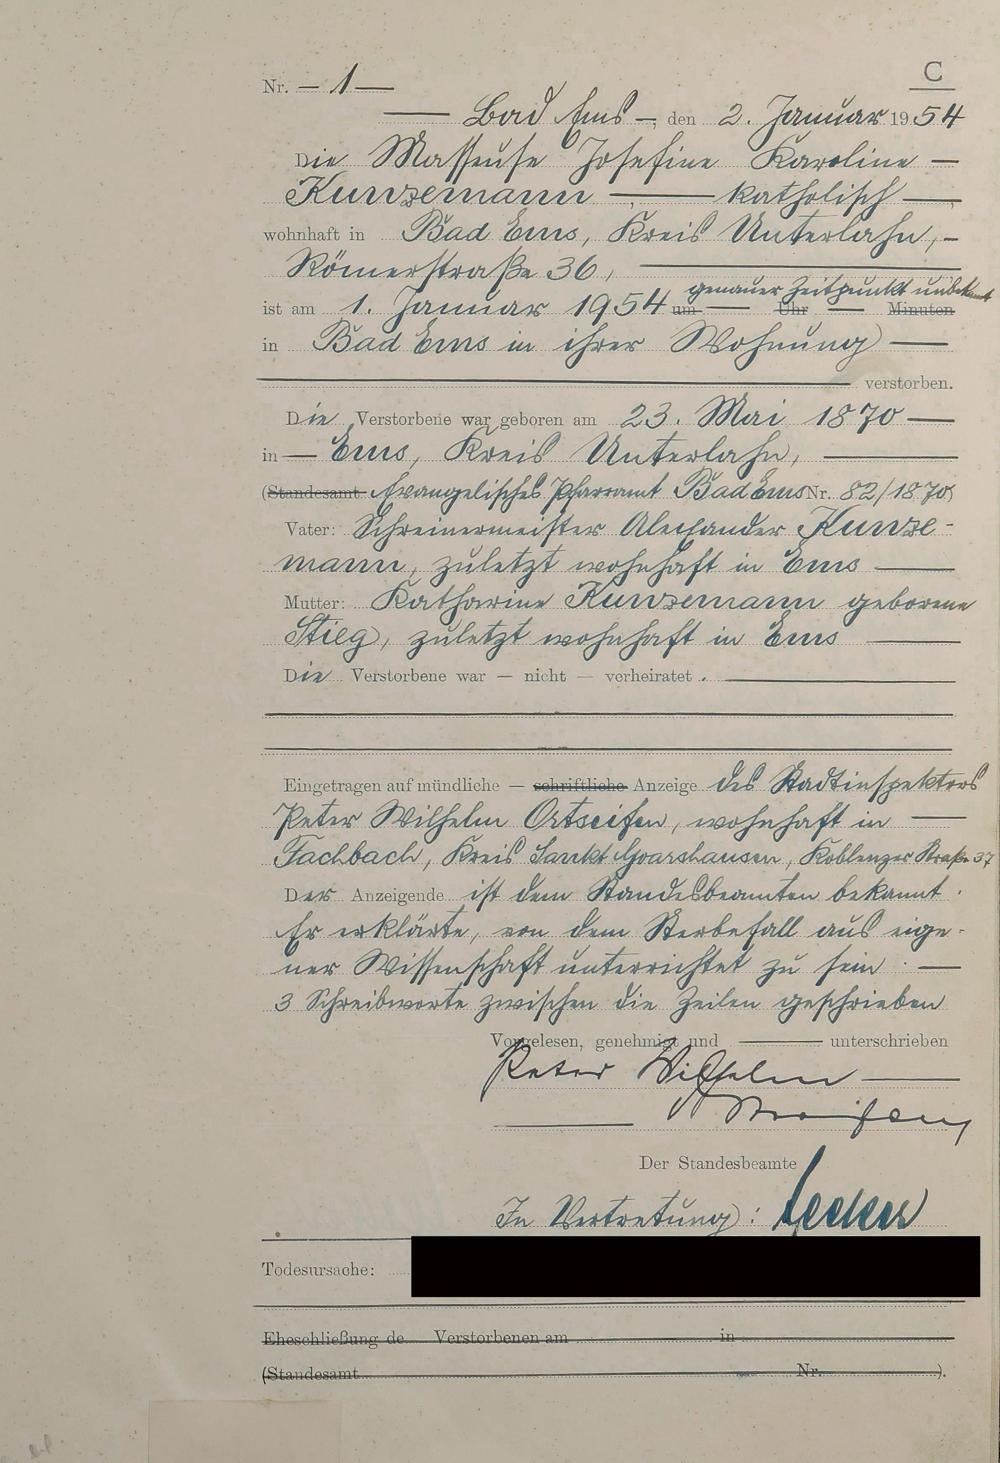 C
Nr. — 1 —
— Bad Ems —, den 2. Januar 1954
Die Masseuse Josefine Karoline —
Kunzemann —, — katholisch —,
wohnhaft in Bad Ems, Kreis Unterlahn, —
Römerstraße 36, —
genauer Zeitpunkt unbekannt
ist am 1. Januar 1954 um — Uhr — Minuten
in Bad Ems in ihrer Wohnung —
verstorben.
Die Verstorbene war geboren am 23. Mai 1870 —
in — Ems, Kreis Unterlahn, —
(Standesamt Evangelisches Pfarramt Bad Ems Nr. 82/1870)
Vater: Schreinermeister Alexander Kunze-
mann, zuletzt wohnhaft in Ems —
Mutter: Katharine Kunzemann geborene
Stieg, zuletzt wohnhaft in Ems —
Die Verstorbene war — nicht — verheiratet. —
Eingetragen auf mündliche — schriftliche Anzeige des Stadtinspektors
Peter Wilhelm Ortseifen, wohnhaft in —
Fachbach, Kreis Sankt Goarshausen, Koblenzer Straße 37
Der Anzeigende ist dem Standesbeamten bekannt.
Er erklärte, von dem Sterbefall aus eige-
ner Wissenschaft unterrichtet zu sein. —
3 Schreibworte zwischen die Zeilen geschrieben
Vorgelesen, genehmigt und — unterschrieben
Peter Wilhelm —
— Ortseifen
Der Standesbeamte
In Vertretung:
Todesursache:
Eheschließung de Verstorbenen am in
(Standesamt Nr. ).